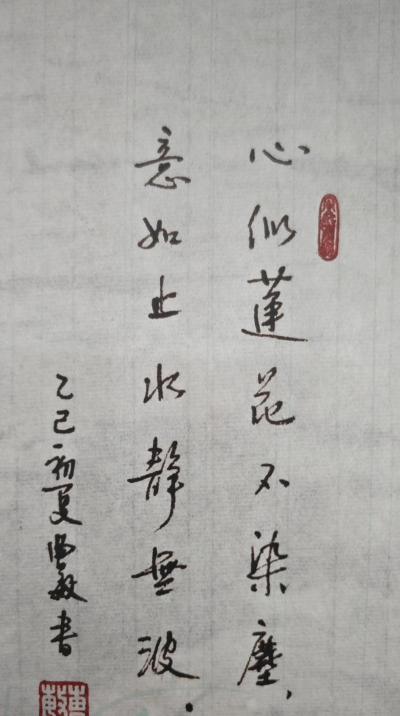 心似莲花不染塵,
意如止水静無波.
乙巳初夏曹敏書